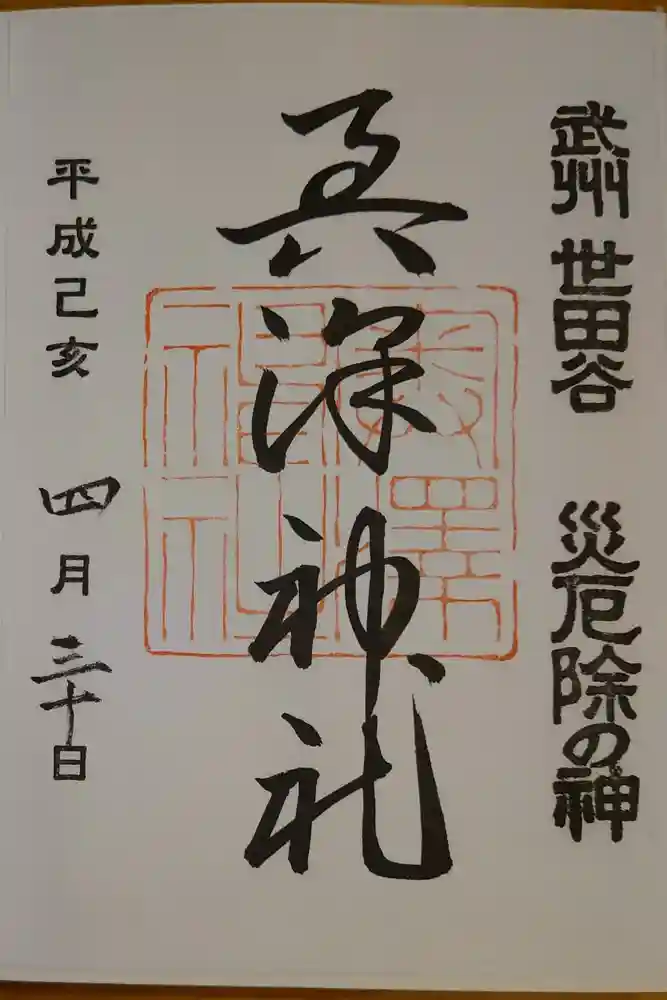 武州 世田谷 災厄除の神
奥澤神社
平成己亥 四月三十日